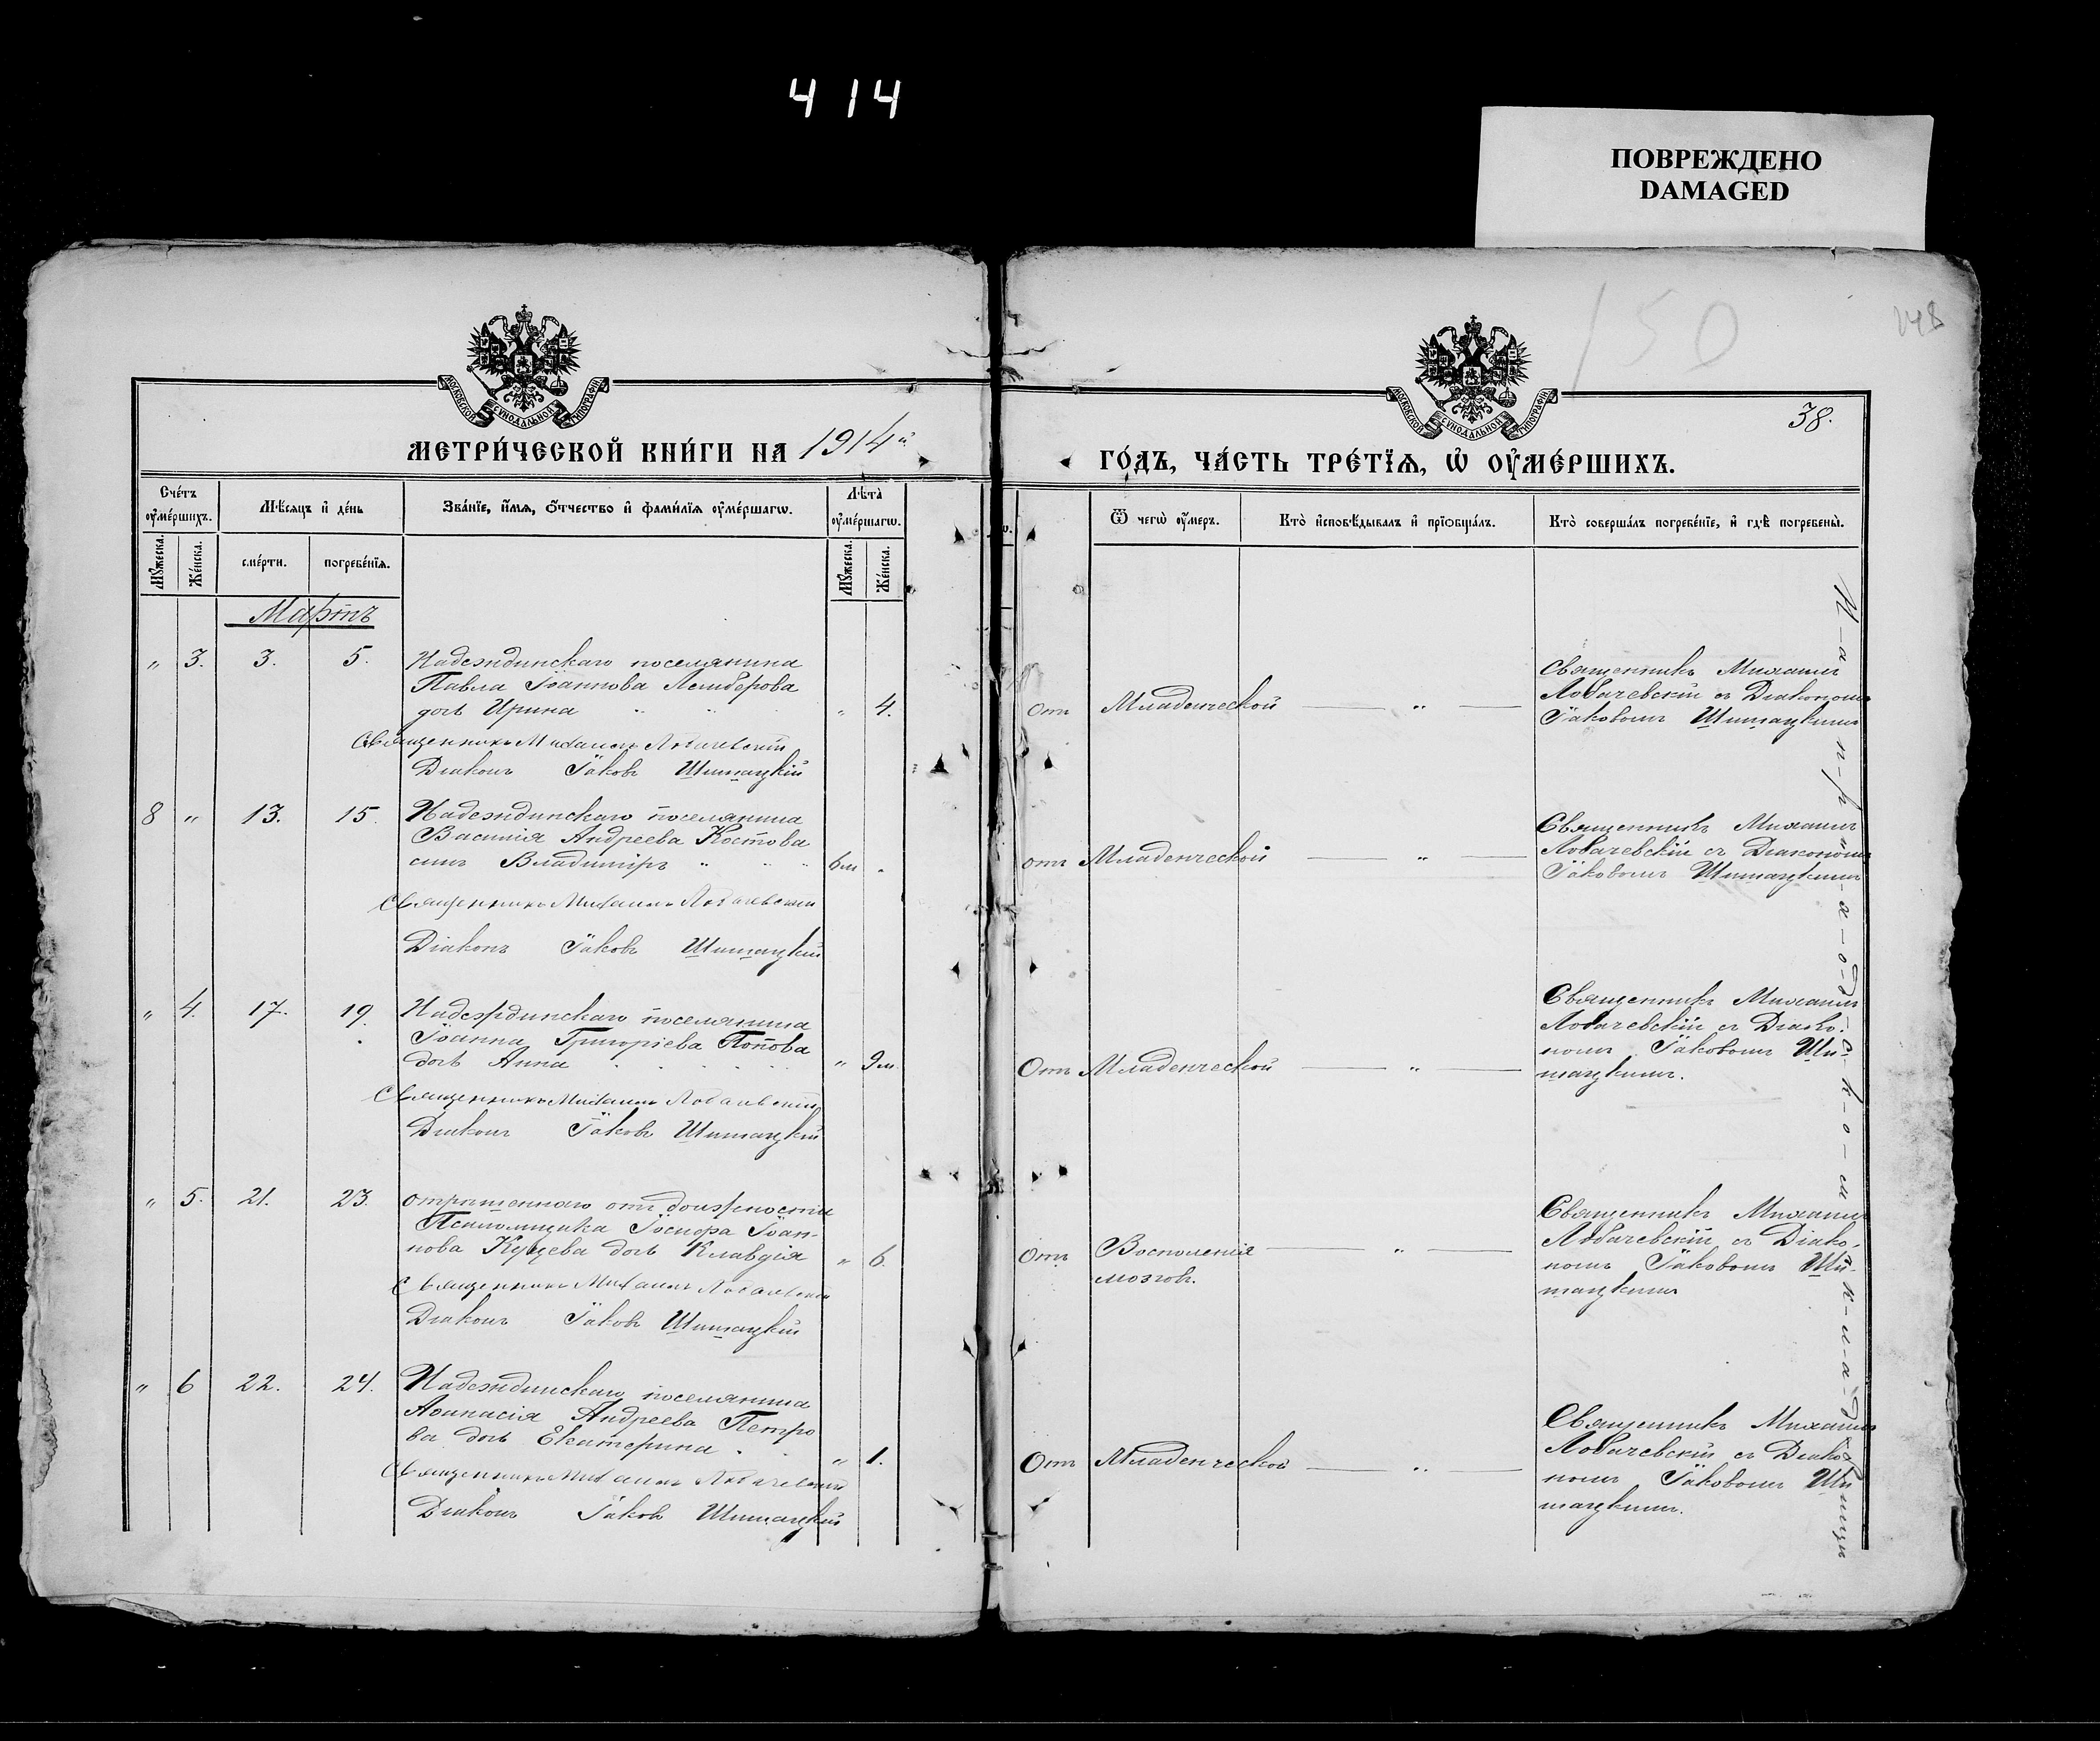 4 14
ПОВРЕЖДЕНО
DAMAGED
150
38.
МОСКОВСКОЙ СѴНОДАЛЬНОЙ ТИПОГРАФІИ
МОСКОВСКОЙ СѴНОДАЛЬНОЙ ТИПОГРАФІИ
МЕТРИ́ЧЕСКОЙ КНИ́ГИ НА 1914й
ГО́ДЪ, ЧА́СТЬ ТРЕ́ТІѦ, Ѡ҆ ОУ҆МЕ́РШИХЪ.
Счётъ оу҆ме́ршихъ.
Мꙋ́жеска.
Же́нска.
Мѣ́сѧцъ и҆ де́нь
сме́рти.
погребе́нїѧ.
Зва́нїе, и҆́мѧ, ѻ҆́тчество и҆ фами́лїѧ оу҆ме́ршагѡ.
Лѣ́та̀ оу҆ме́ршагѡ.
Мꙋ́жеска.
Же́нска.
Ѿ чегѡ̀ оу҆́меръ.
Кто̀ и҆сповѣ́дывалъ и҆ прїѡбща́лъ.
Кто̀ соверша́лъ погребе́нїе, и҆ гдѣ̀ погребены̀.
Мартъ
„ 3. 3. 5. Надеждинскаго поселянина
Павла Іоаннова
дочь Ирина „ 4.
Священникъ Михаилъ Лобачевскій
Діаконъ Іаковъ Шишацкій
Отъ Младенческой — „ —
Священникъ Михаилъ
Лобачевскій съ Діакономъ
Іаковомъ Шишацкимъ
8 „ 13. 15. Надеждинскаго поселянина
Василія Андреева Костова
сынъ Владиміръ „ 6 м „
Священникъ Михаилъ Лобачевскій
Діаконъ Іаковъ Шишацкій
отъ Младенческой — „ —
Священникъ Михаилъ
Лобачевскій съ Діакономъ
Іаковомъ Шишацкимъ
„ 4. 17. 19. Надеждинскаго поселянина
Іоанна Григоріева Попова
дочь Анна „ 9 м.
Священникъ Михаилъ Лобачевскій
Діаконъ Іаковъ Шишацкій
Отъ Младенческой — „ —
Священникъ Михаилъ
Лобачевскій съ Діако-
номъ Іаковомъ Ши-
шацкимъ.
„ 5. 21. 23. отрѣшеннаго отъ должности
Псаломщика Іосифа Іоан-
нова дочь Клавдія „ 6.
Священникъ Михаилъ Лобачевскій
Діаконъ Іаковъ Шишацкій
Отъ Воспаленія — „ —
мозговъ.
Священникъ Михаилъ
Лобачевскій съ Діако-
номъ Іаковомъ Ши-
шацкимъ
„ 6 22. 24. Надеждинскаго поселянина
Аѳанасія Андреева Петро
ва дочь Екатерина „ 1.
Священникъ Михаилъ Лобачевскій
Діаконъ Іаковъ Шишацкій
Отъ Младенческой — „ —
Священникъ Михаилъ
Лобачевскій съ Діако
номъ Іаковомъ Ши
шацкимъ.
Н-а п-р-и-х-о-д-с-к-о-м